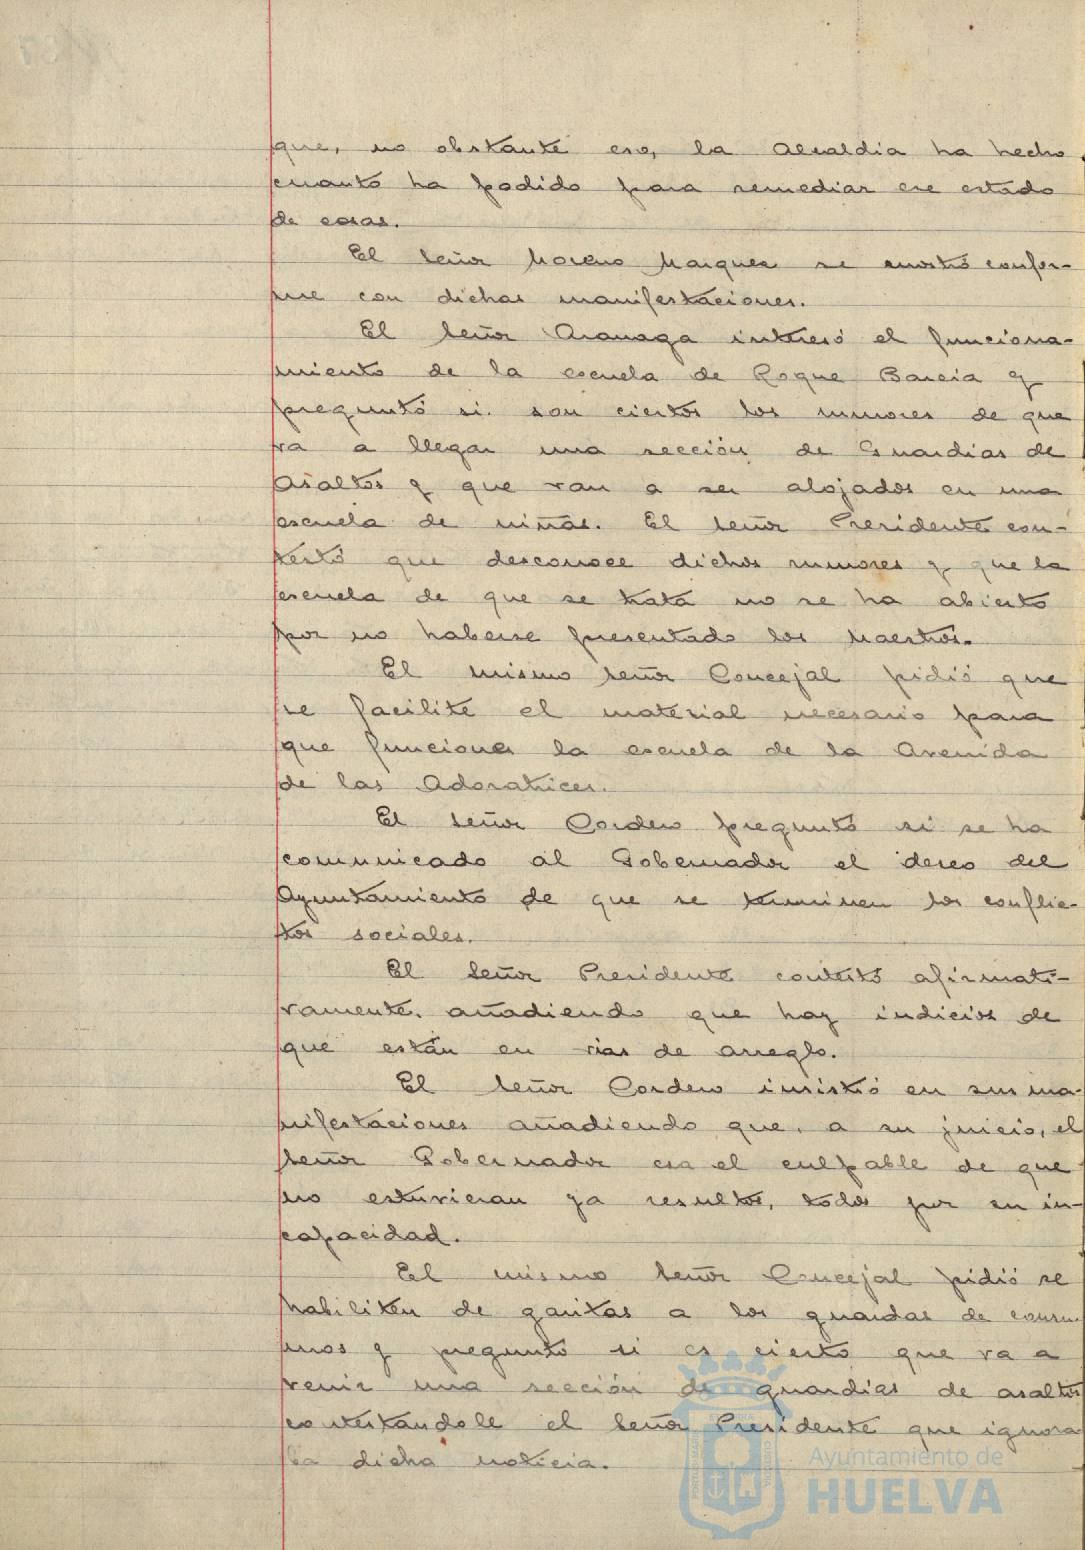 que, no obstante eso, la Alcaldia ha hecho
cuanto ha podido para remediar ese estado
de cosas.
El señor Moreno Marquez se mostró confor-
me con dichas manifestaciones.
El señor Aranaga interesó el funciona-
miento de la escuela de Roque Barcia y
preguntó si son ciertos los rumores de que
va a llegar una sección de Guardias de
Asaltos y que van a ser alojados en una
escuela de niñas. El señor Presidente con-
testó que desconoce dichos rumores y que la
escuela de que se trata no se ha abierto
por no haberse presentado los Maestros.
El mismo señor Concejal pidió que
se facilite el material necesario para
que funcione la escuela de la Avenida
de las Adoratrices.
El señor Cordero preguntó si se ha
comunicado al Gobernador el deseo del
Ayuntamiento de que se terminen los conflic-
tos sociales.
El señor Presidente contestó afirmati-
vamente, añadiendo que hay indicios de
que están en vias de arreglo.
El señor Cordero insistió en sus ma-
nifestaciones añadiendo que, a su juicio, el
señor Gobernador era el culpable de que
no estuvieran ya resueltos, todos por su in-
capacidad.
El mismo señor Concejal pidió se
habiliten de garitas a los guardas de consu-
mos y preguntó si es cierto que va a
venir una sección de guardias de asaltos
contestandole el señor Presidente que ignora
ba dicha noticia.
Ayuntamiento de
HUELVA